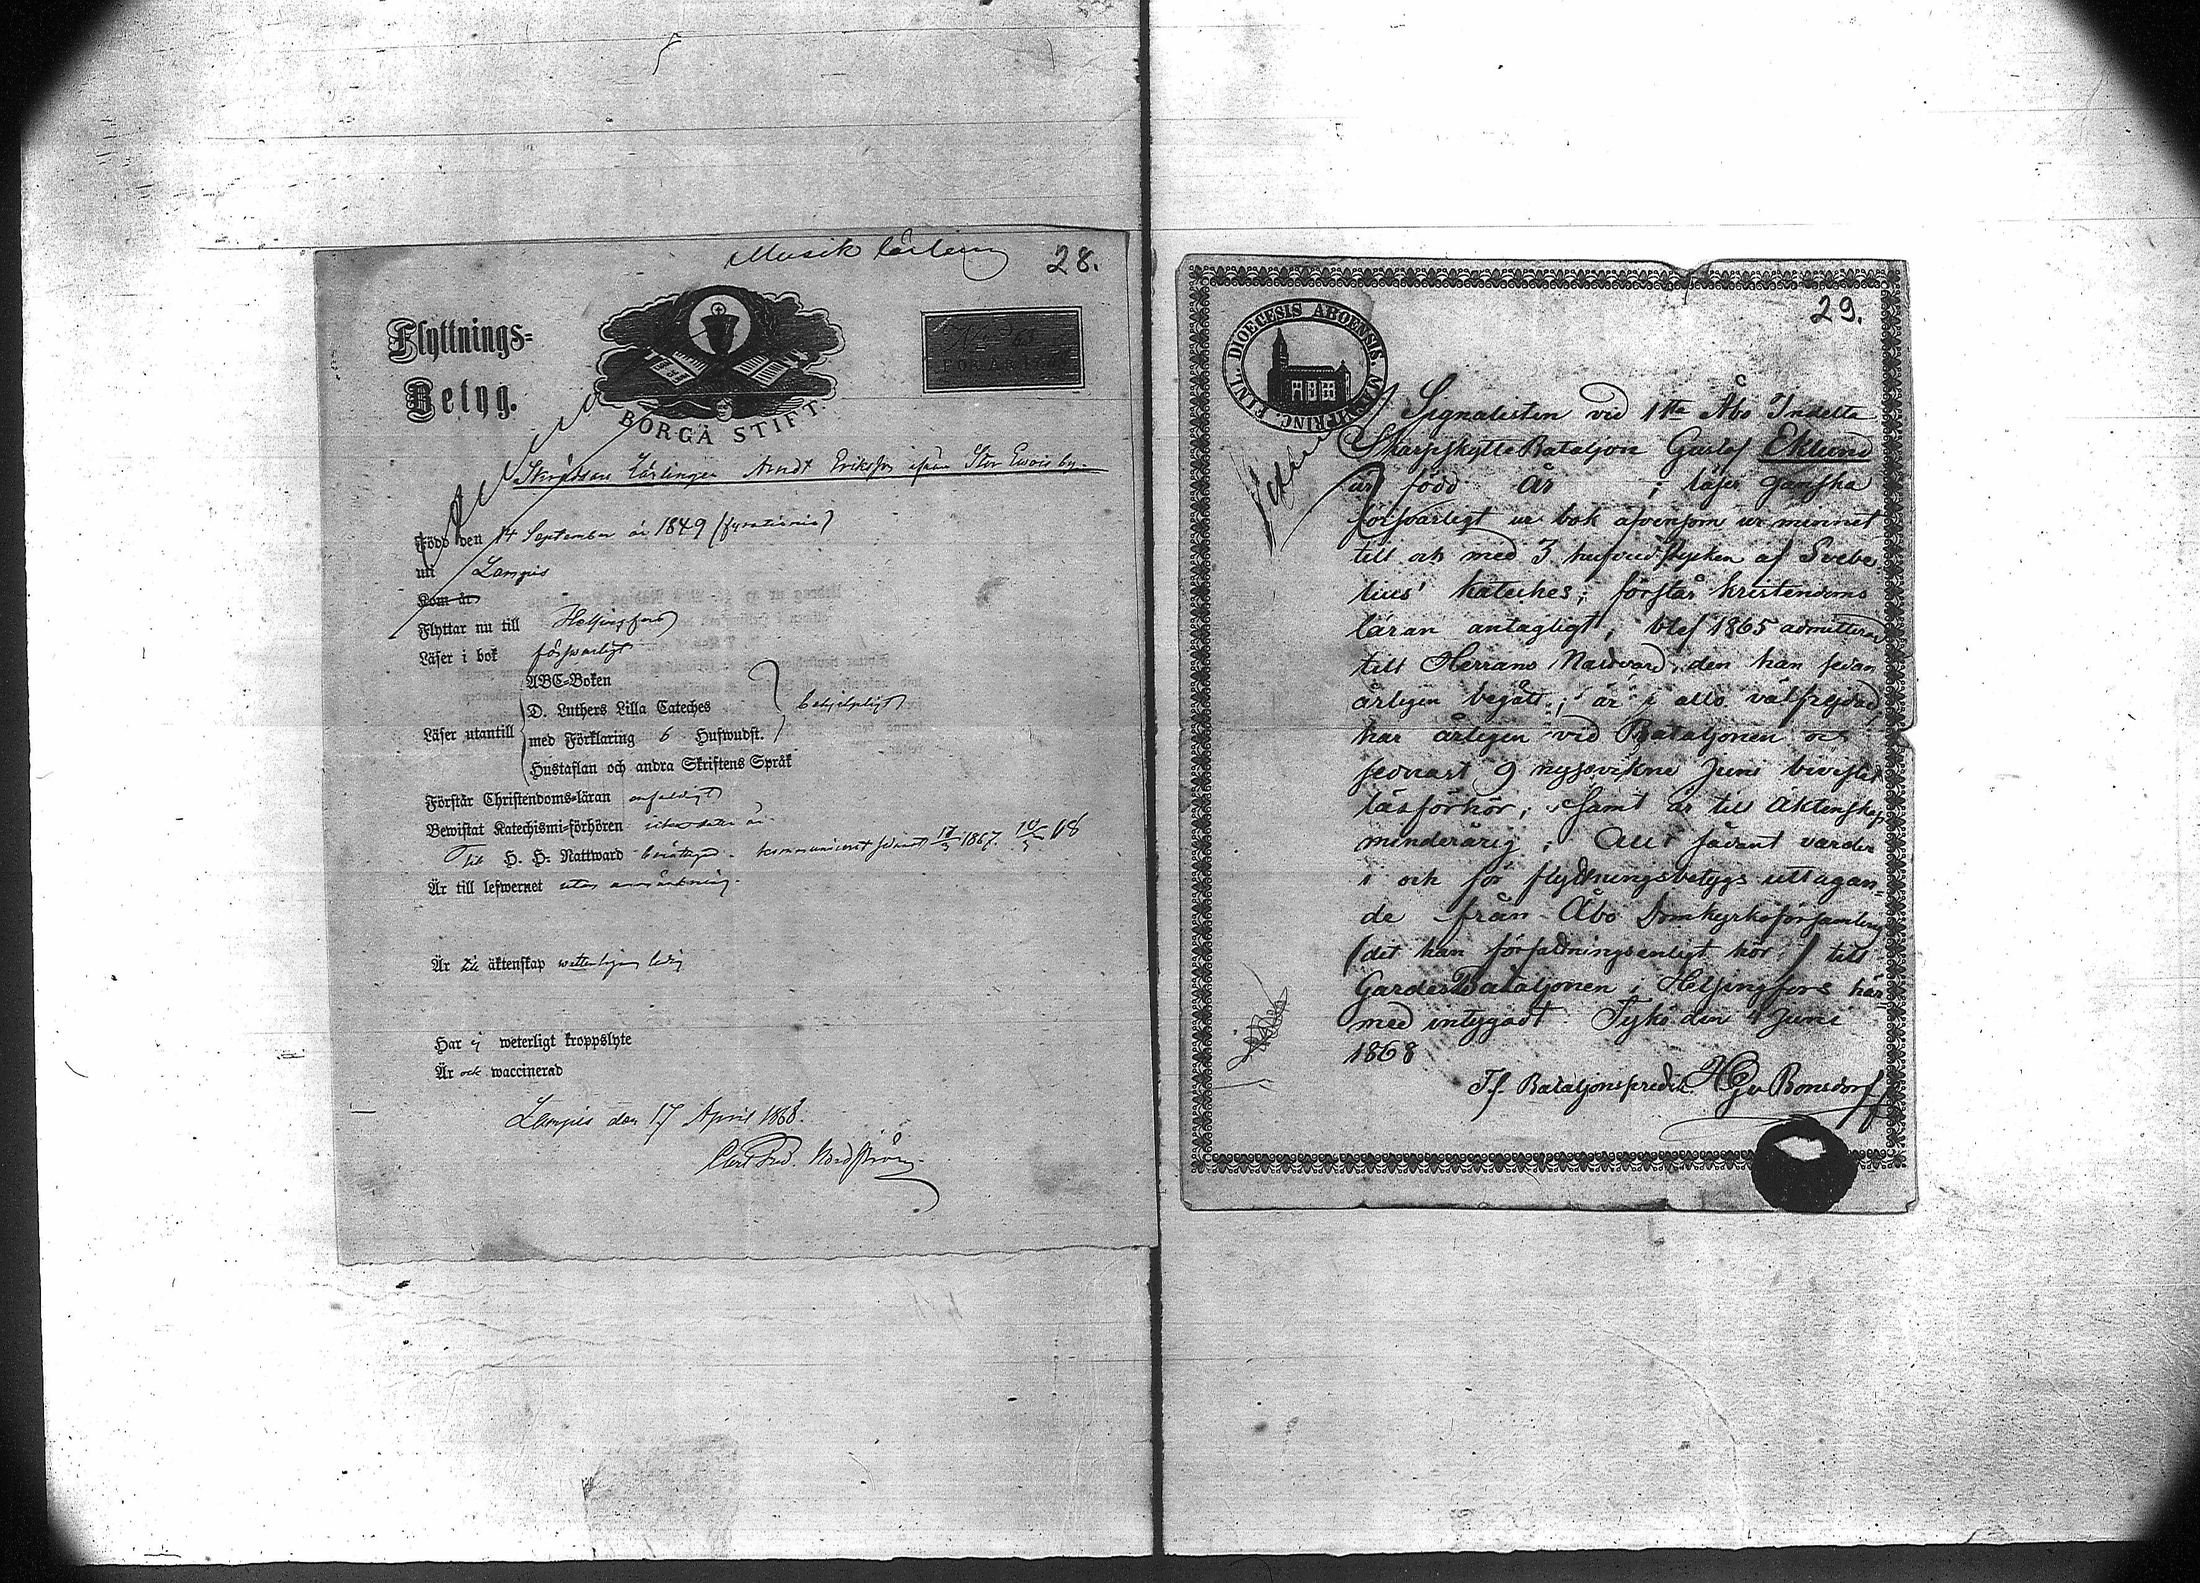 Musik lärling 28.
Flyttnings-
Betyg.
BORGÅ STIFT.
Skräddare Lärlingen Arndt Eriksson ifrån Stor Evois by.
Född den 14 September år 1849 (fyrationio)
uti Lampis
Kom år
Flyttar nu till Helsingfors
Läser i bok försvarligt
Läser utantill
ABC-Boken
D. Luthers Lilla Cateches
med Förklaring 6 Hufwudst.
Hustaflan och andra Skriftens Språk
behjelpligt
Förstår Christendoms-läran enfaldigt
Bewistat Katechismi-förhören
Till H. H. Nattward berättigad. kommunicerat sednast 1867. 68
Är till lefwernet utan anmärkning.
Är till äktenskap wetterligen ledig
Har ej weterligt kroppslyte
Är ock waccinerad
Lampis den 17 April 1868.
Carl Fred. Nordström
29.
FINL. DIOECESIS ABOENSIS.
Signalisten vid 1sta Åbo Indelta
Skarpskytte Bataljon Gustaf Eklund
är född År ; läser ganska
försvarligt ur bok äfvensom ur minnet
till och med 3 hufvudstycken af Svebe
lius' kateches; förstår kristendoms
läran antagligt; blef 1865 admitterad
till Herrans Nattvard, den han sedan
årligen begått; är i allo välfrejdad,
har årligen vid Bataljonen och
sednast 9 nyssvikne Juni bivistat
läsförhör; samt är till äktenskap
minderårig; Allt sådant varder
i och för flyttningsbetygs uttagan-
de från Åbo Domkyrkoförsamling
(det han författningsenligt bör) till
Gardes Bataljonen i Helsingfors här
med intygadt. Tykö den Juni
1868
T.f. Bataljonspredik. v Bonsdorff